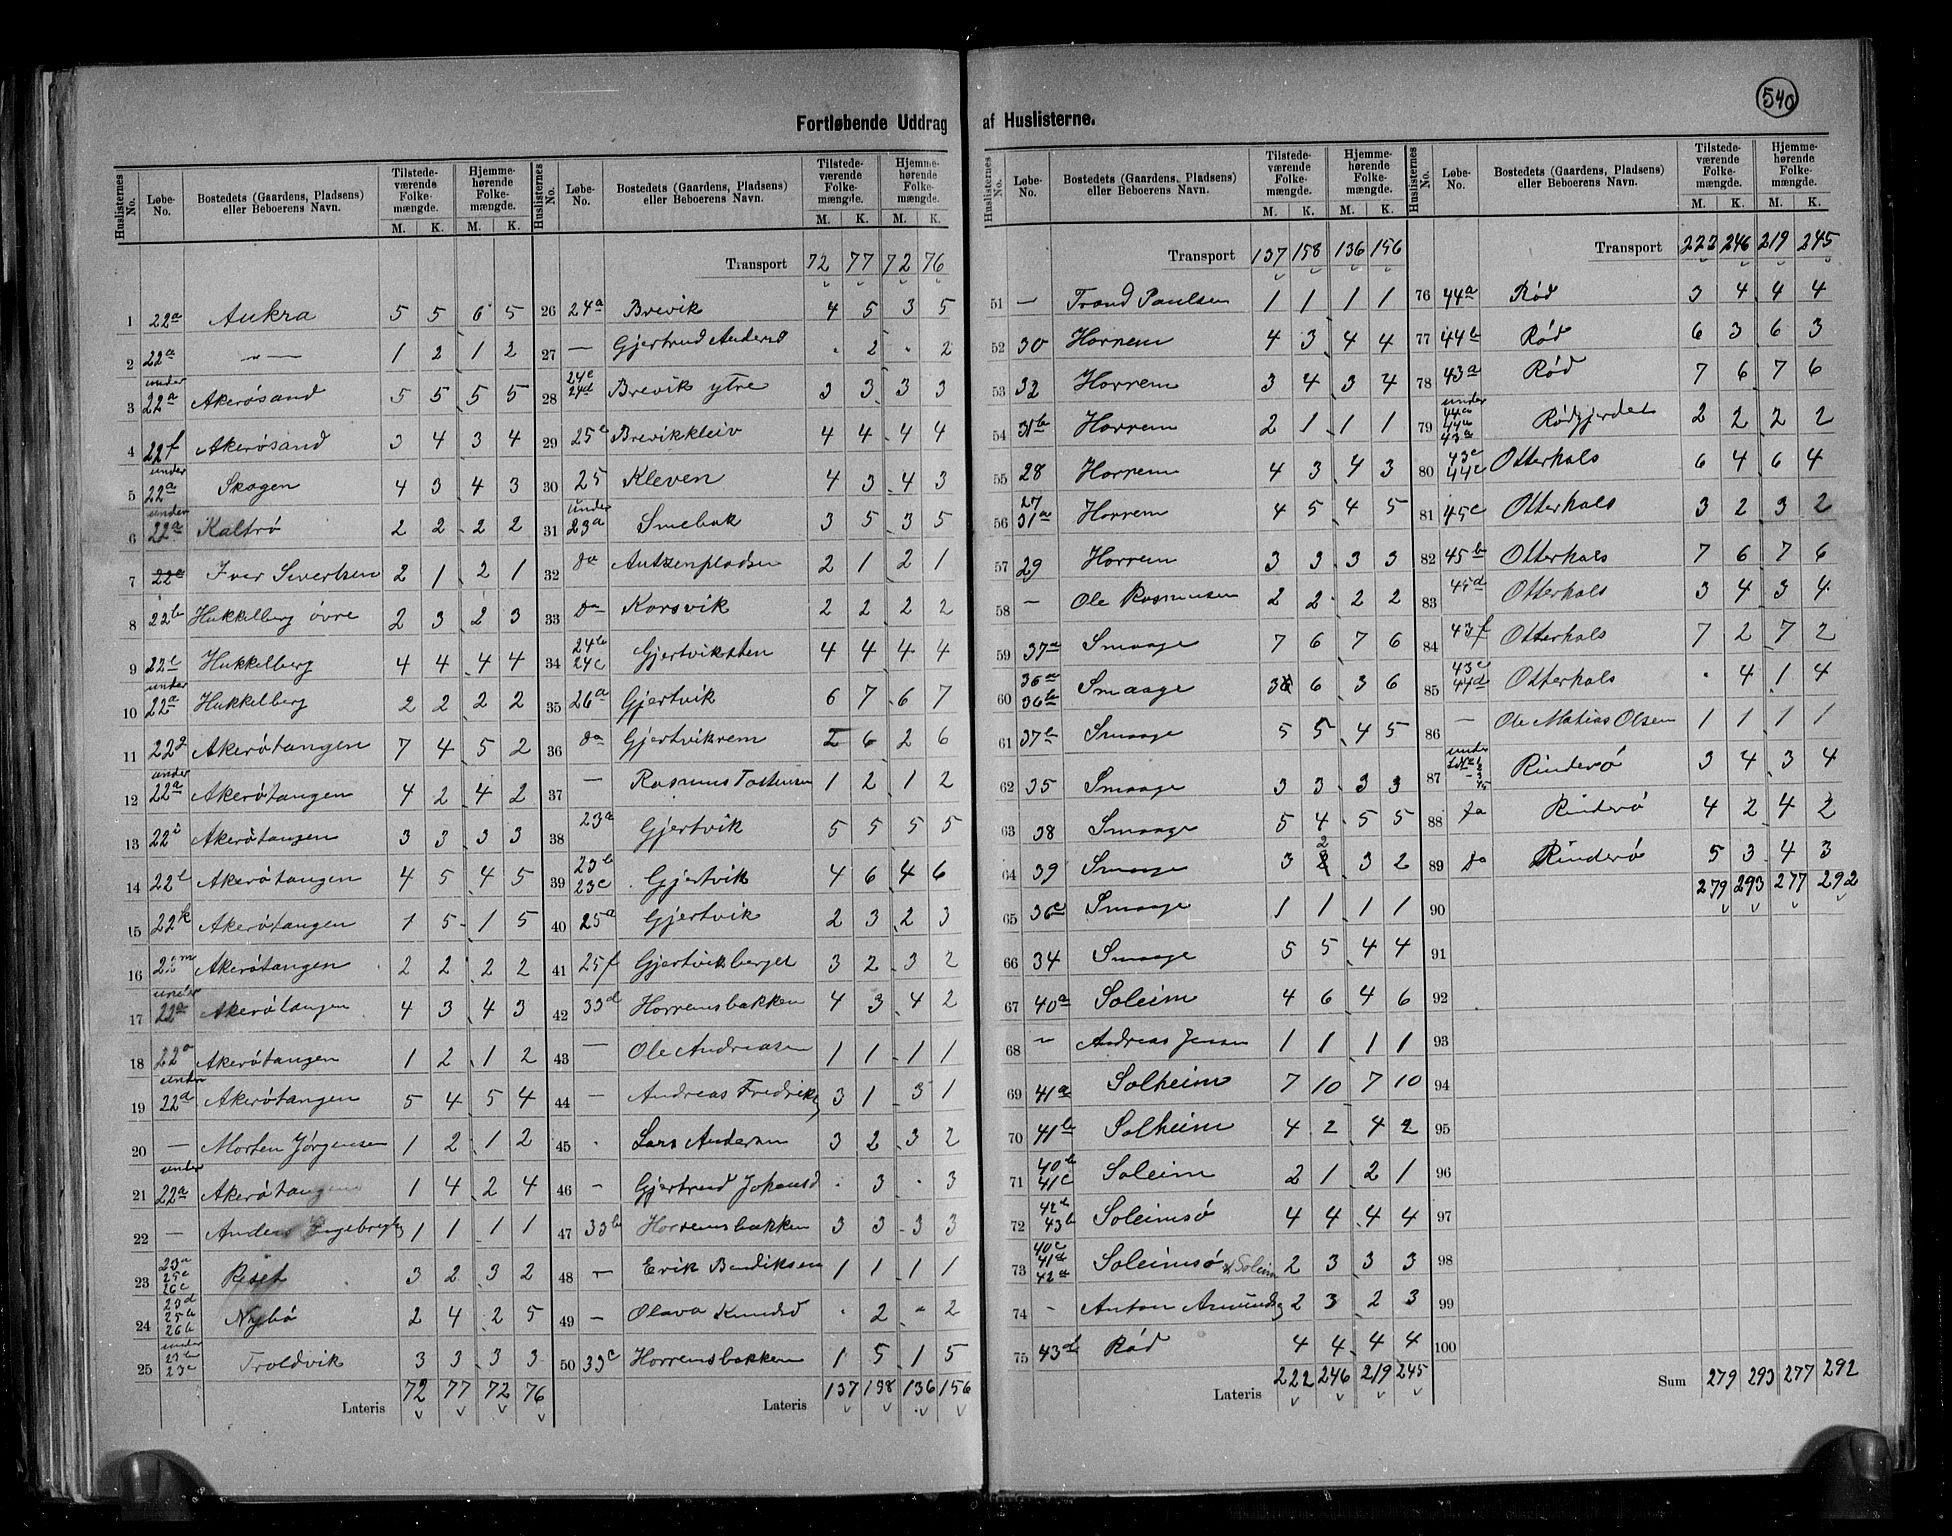 540
Fortløbende Uddrag af Huslisterne.
Huslisternes No. Løbe-No. Bostedets (Gaardens, Pladsens) eller Beboerens Navn. Tilstedeværende Folkemængde. Hjemmehørende Folkemængde.
M. K. M. K.
1 22a Aukra 5 5 6 5
2 22a -"- 1 2 1 2
3 under 22a Akerösand 5 5 5 5
4 22f Akerösand 3 4 3 4
5 under 22a Skogen 4 3 4 3
6 under 22a Kaltrö 2 2 2 2
7 22a Iver Sivertsen 2 1 2 1
8 22b Hukkelberg övre 2 3 2 3
9 22c Hukkelberg 4 4 4 4
10 under 22a Hukkelberg 2 2 2 2
11 22g Akerötangen 7 4 5 2
12 under 22a Akerötangen 4 2 4 2
13 22i Akerötangen 3 3 3 3
14 22l Akerötangen 4 5 4 5
15 22k Akerötangen 1 5 1 5
16 22m Akerötangen 2 2 2 2
17 under 22a Akerötangen 4 3 4 3
18 22a Akerötangen 1 2 1 2
19 under 22a Akerötangen 5 4 5 4
20 — Morten Jörgensen 1 2 1 2
21 under 22a Akerötangen 1 4 2 4
22 — Anders Engebregts 1 1 1 1
23 23a 25c 26c Reset 3 2 3 2
24 23d 25a 26b Nybö 2 4 2 5
25 under 23b 23c Troldvik 3 3 3 3
Lateris 72 77 72 76
Huslisternes No. Løbe-No. Bostedets (Gaardens, Pladsens) eller Beboerens Navn. Tilstedeværende Folkemængde. Hjemmehørende Folkemængde.
M. K. M. K.
Transport 72 77 72 76
26 24a Brevik 4 5 3 5
27 — Gjertrud Andersd . 2 . 2
28 24c 24d Brevik ytre 3 3 3 3
29 25e Brevikkleiv 4 4 4 4
30 25 Kleven 4 3 4 3
31 under 23a Smebak 3 5 3 5
32 do 2 1 2 1
33 do Korsvik 2 2 2 2
34 24b 24c Gjertviksten 4 4 4 4
35 26a Gjertvik 6 7 6 7
36 do Gjertvikrem 2 6 2 6
37 — Rasmus Tostensen 1 2 1 2
38 23a Gjertvik 5 5 5 5
39 23b 23c Gjertvik 4 6 4 6
40 25a Gjertvik 2 3 2 3
41 25f Gjertviksberget 3 2 3 2
42 33d Horremsbakken 4 3 4 2
43 — Ole Andreasen 1 1 1 1
44 — Andreas Fredriks 3 1 3 1
45 . Lars Andersen 3 2 3 2
46 — Gjertrud Johansd . 3 . 3
47 33b Horremsbakken 3 3 3 3
48 — Erik Bendiksen 1 1 1 1
49 — Olava Knudsd . 2 . 2
50 33c Horremsbakken 1 5 1 5
Lateris 137 158 136 156
Huslisternes No. Løbe-No. Bostedets (Gaardens, Pladsens) eller Beboerens Navn. Tilstedeværende Folkemængde. Hjemmehørende Folkemængde.
M. K. M. K.
Transport 137 158 136 156
51 — Trond Paulsen 1 1 1 1
52 30 Horrem 4 3 4 4
53 32 Horrem 3 4 3 4
54 31b Horrem 2 1 1 1
55 28 Horrem 4 3 4 3
56 27 31a Horrem 4 5 4 5
57 29 Horrem 3 3 3 3
58 — Ole Rasmussen 2 2 2 2
59 37a Smaage 7 6 7 6
60 36a 36b Smaage 3 6 3 6
61 37b Smaage 5 5 4 5
62 35 Smaage 3 3 3 3
63 38 Smaage 5 4 5 5
64 39 Smaage 3 2 3 2
65 36c Smaage 1 1 1 1
66 34 Smaage 5 5 4 4
67 40a Soleim 4 6 4 6
68 " Andreas Jensen 1 1 1 1
69 41a Solheim 7 10 7 10
70 41b Solheim 4 2 4 2
71 40b 41c Soleim 2 1 2 1
72 42b 43b Soleimsö 4 4 4 4
73 40c 41d 42a Soleimsö Soleim 2 3 3 3
74 - Anton Amunds 2 3 2 3
75 43d Röd 4 4 4 4
Lateris 222 246 219 245
Huslisternes No. Løbe-No. Bostedets (Gaardens, Pladsens) eller Beboerens Navn. Tilstedeværende Folkemængde. Hjemmehørende Folkemængde.
M. K. M. K.
Transport 222 246 219 245
76 44a Röd 3 4 4 4
77 44b Röd 6 3 6 3
78 43a Röd 7 6 7 6
79 under 44a 43a Rödgjerdet 2 2 2 2
80 43c 44c Otterhals 6 4 6 4
81 45c Otterhals 3 2 3 2
82 45b Otterhals 7 6 7 6
83 45d Otterhals 3 4 3 4
84 43f Otterhals 7 2 7 2
85 43c 44d Otterhals . 4 1 4
86 — Ole Matias Olsen 1 1 1 1
87 under Rinderö 3 4 3 4
88 do Rinderö 4 2 4 2
89 do Rinderö 5 3 4 3
90 279 293 277 292
91
92
93
94
95
96
97
98
99
100
Sum 279 293 277 292